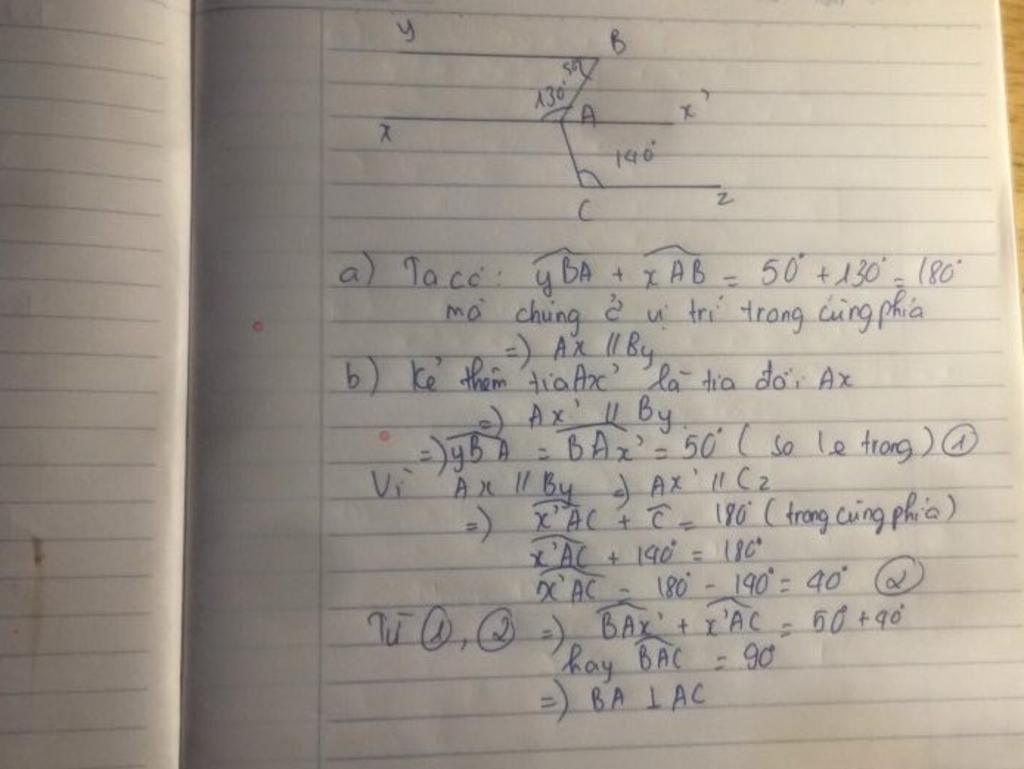 y B
50°
130° A x'
x
140°
C z
a) Ta có: yBA + xAB = 50° + 130° = 180°
mà chúng ở vị trí trong cùng phía
=) Ax // By
b) Kẻ thêm tia Ax' là tia đối Ax
=) Ax' // By
=) yBA = BAx' = 50° ( so le trong ) ①
Vì Ax // By =) Ax' // Cz
=) x'AC + C = 180° ( trong cùng phía )
x'AC + 140° = 180°
x'AC = 180° - 140° = 40° ②
Từ ①, ② =) BAx' + x'AC = 50° + 40°
hay BAC = 90°
=) BA ⊥ AC